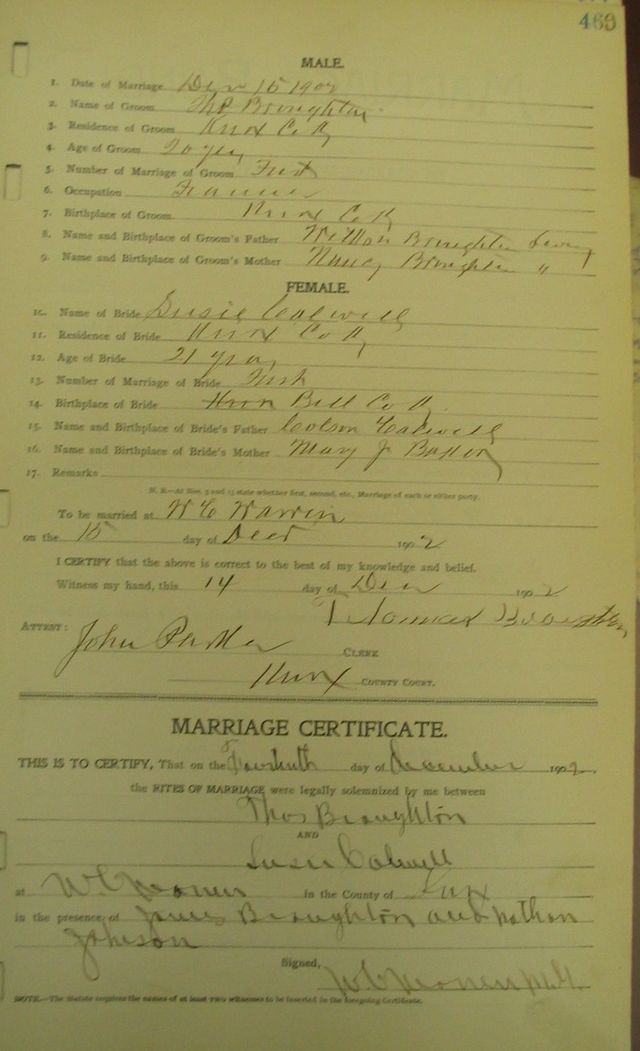 469
MALE.
1. Date of Marriage Dec 15 1902
2. Name of Groom Thos Broughton
3. Residence of Groom Knox Co Ky
4. Age of Groom 20 yrs
5. Number of Marriage of Groom First
6. Occupation Farmer
7. Birthplace of Groom Knox Co Ky
8. Name and Birthplace of Groom's Father Broughton
9. Name and Birthplace of Groom's Mother Nancy Broughton "
FEMALE.
10. Name of Bride Susie Colwell
11. Residence of Bride Knox Co Ky
12. Age of Bride 21 yrs
13. Number of Marriage of Bride First
14. Birthplace of Bride Bell Co Ky
15. Name and Birthplace of Bride's Father
16. Name and Birthplace of Bride's Mother Mary J
17. Remarks
N. B.—At Nos. 5 and 13 state whether first, second, etc., Marriage of each or either party.
To be married at W C
on the 15 day of 1902
I CERTIFY that the above is correct to the best of my knowledge and belief.
Witness my hand, this 14 day of Dec 1902
Thomas Broughton
ATTEST:
John Parker CLERK
Knox COUNTY COURT.
MARRIAGE CERTIFICATE.
THIS IS TO CERTIFY, That on the day of december 1902
the RITES OF MARRIAGE were legally solemnized by me between
Thos Broughton
AND
Susie Colwell
at W C in the County of Knox
in the presence of James Broughton and Nathan
Johnson
Signed, W C
NOTE.—The Statute requires the names of at least TWO witnesses to be inserted in the foregoing Certificate.